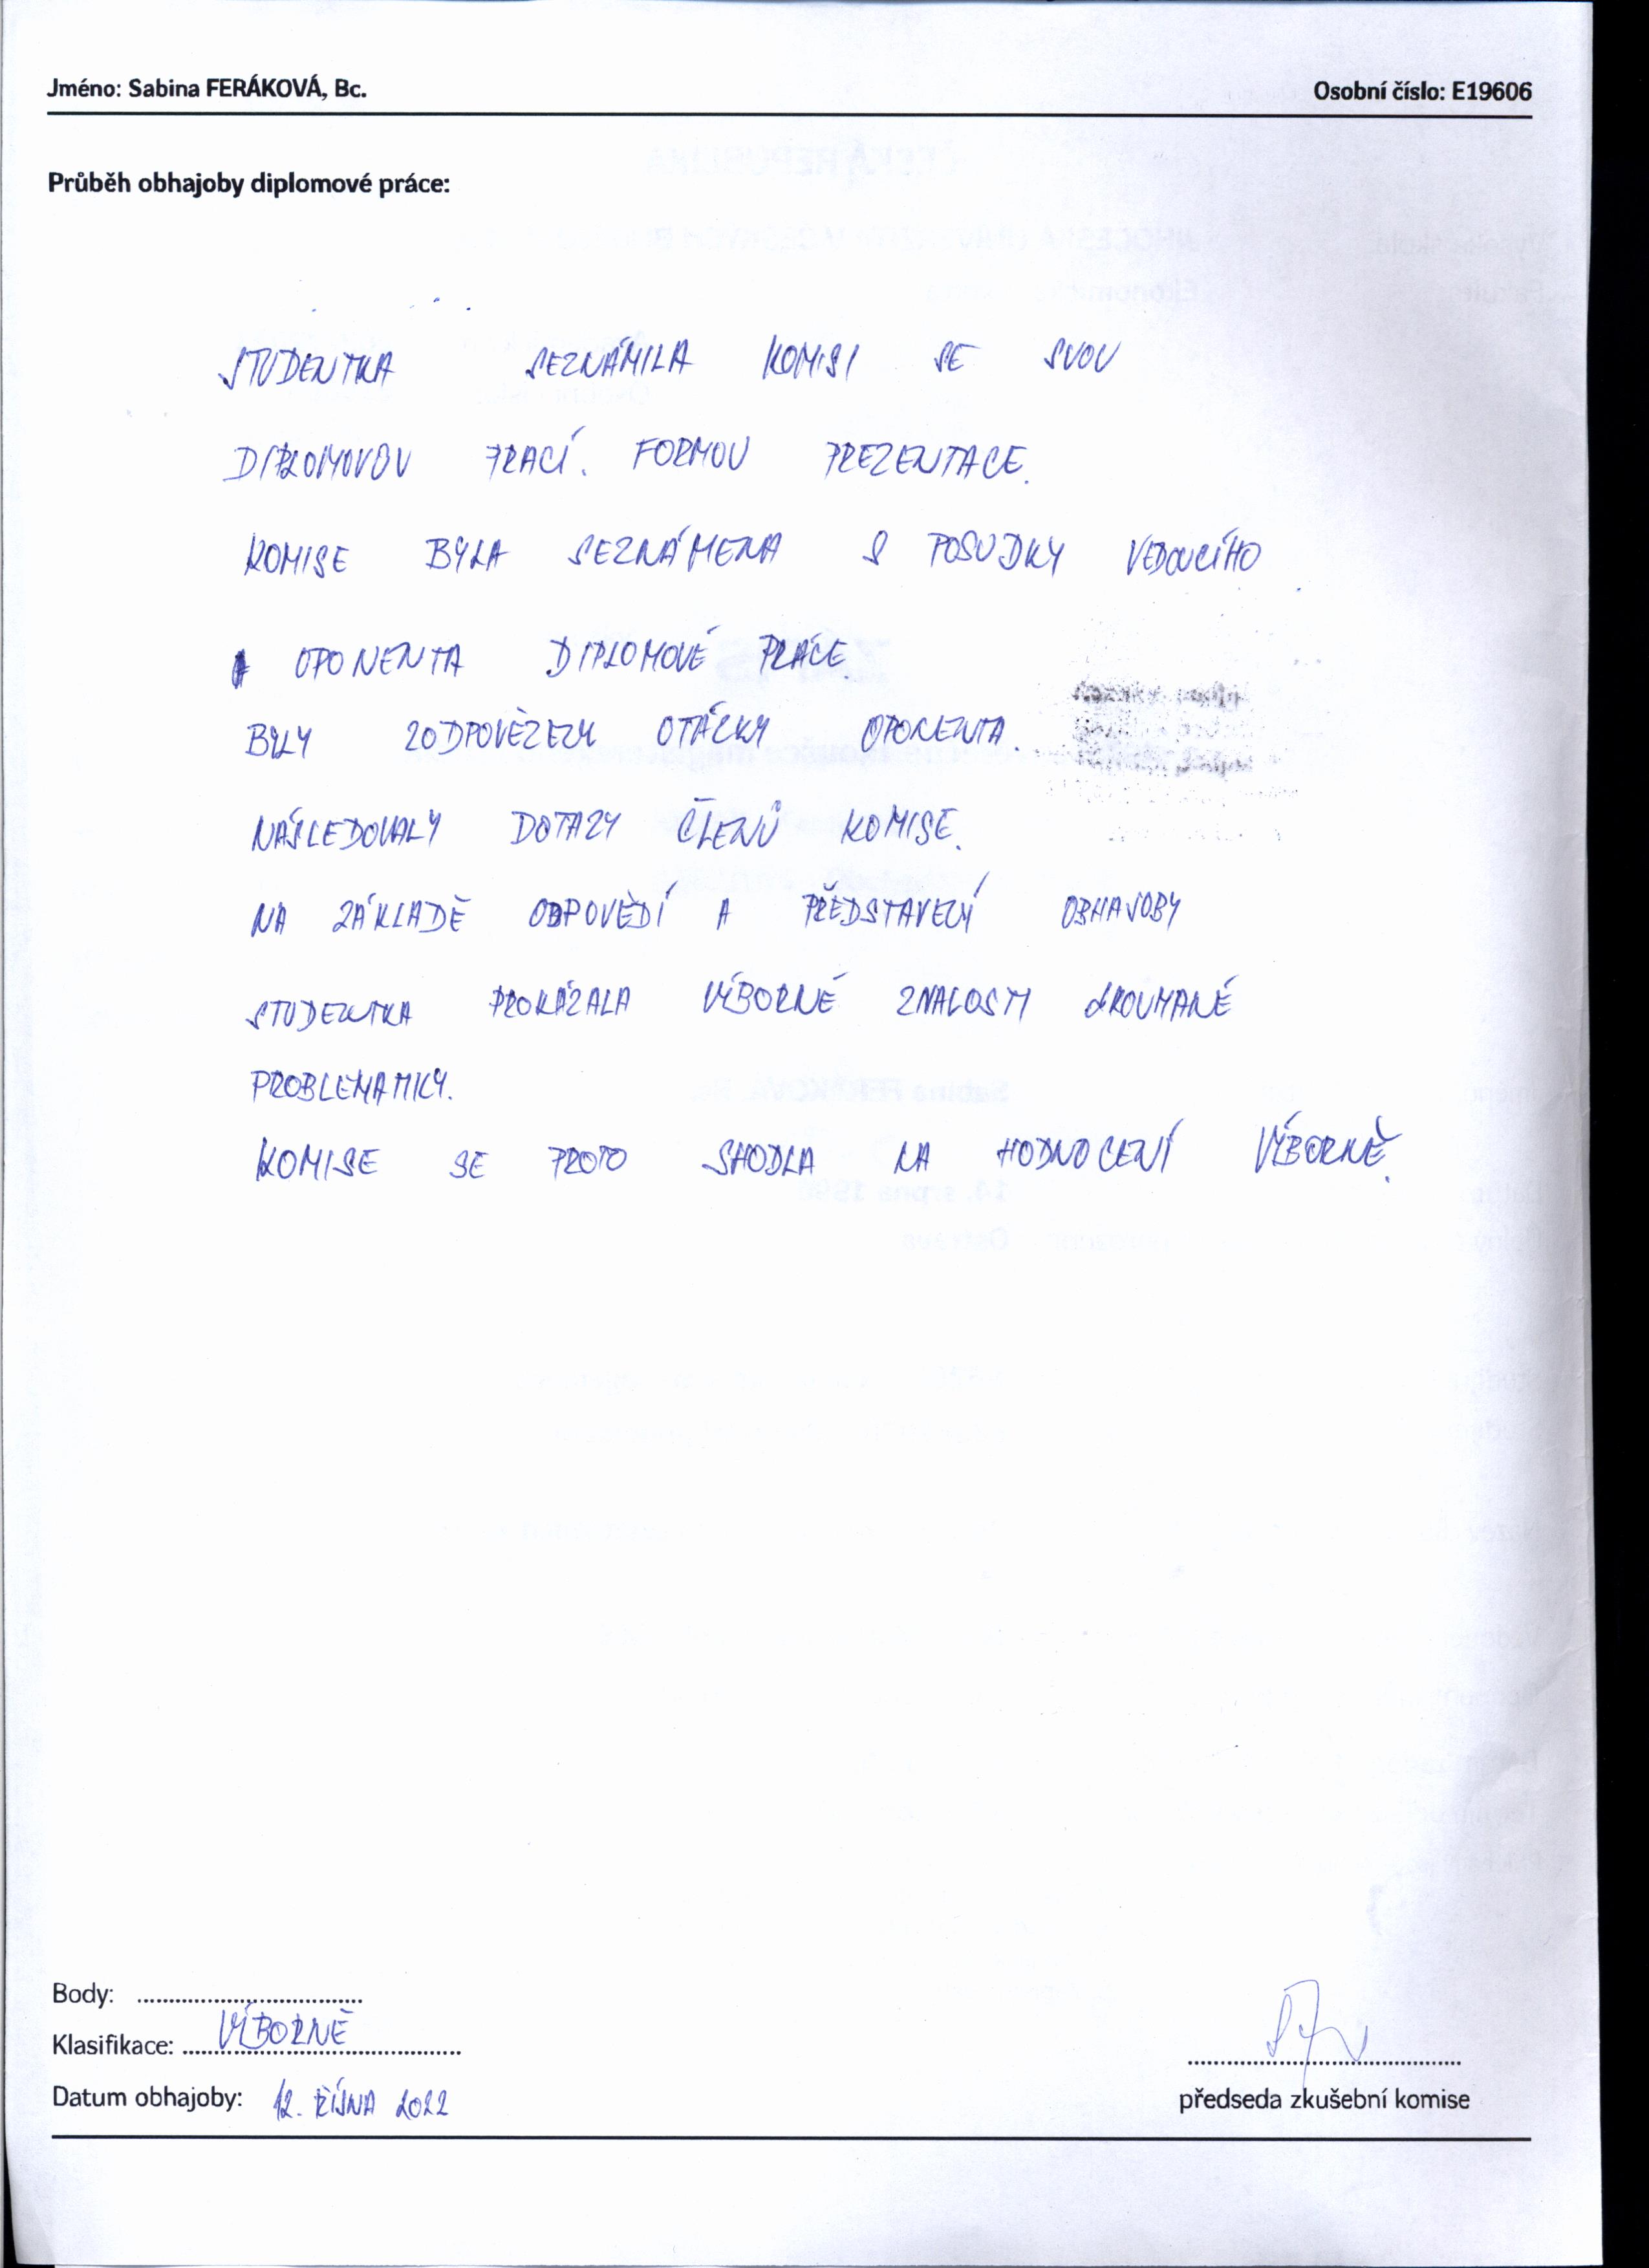 Jméno: Sabina FERÁKOVÁ, Bc.
Osobní číslo: E19606
Průběh obhajoby diplomové práce:
STUDENTKA SEZNÁMILA KOMISI SE SVOU
DIPLOMOVOU PRACÍ. FORMOU PREZENTACE.
KOMISE BYLA SEZNÁMENA S POSUDKY VEDOUCÍHO
OPONENTA DIPLOMOVÉ PRÁCE
BYLY ZODPOVĚZENY OTÁZKY OPONENTA.
NÁSLEDOVALY DOTAZY ČLENŮ KOMISE.
NA ZÁKLADĚ ODPOVĚDÍ A PŘEDSTAVENÍ OBHAJOBY
STUDENTKA PROKÁZALA VÝBORNÉ ZNALOSTI ZKOUMANÉ
PROBLEMATIKY.
KOMISE SE PROTO SHODLA NA HODNOCENÍ VÝBORNĚ.
Body: ....................................
Klasifikace: VÝBORNĚ
Datum obhajoby: 12. ŘÍJNA 2022
předseda zkušební komise